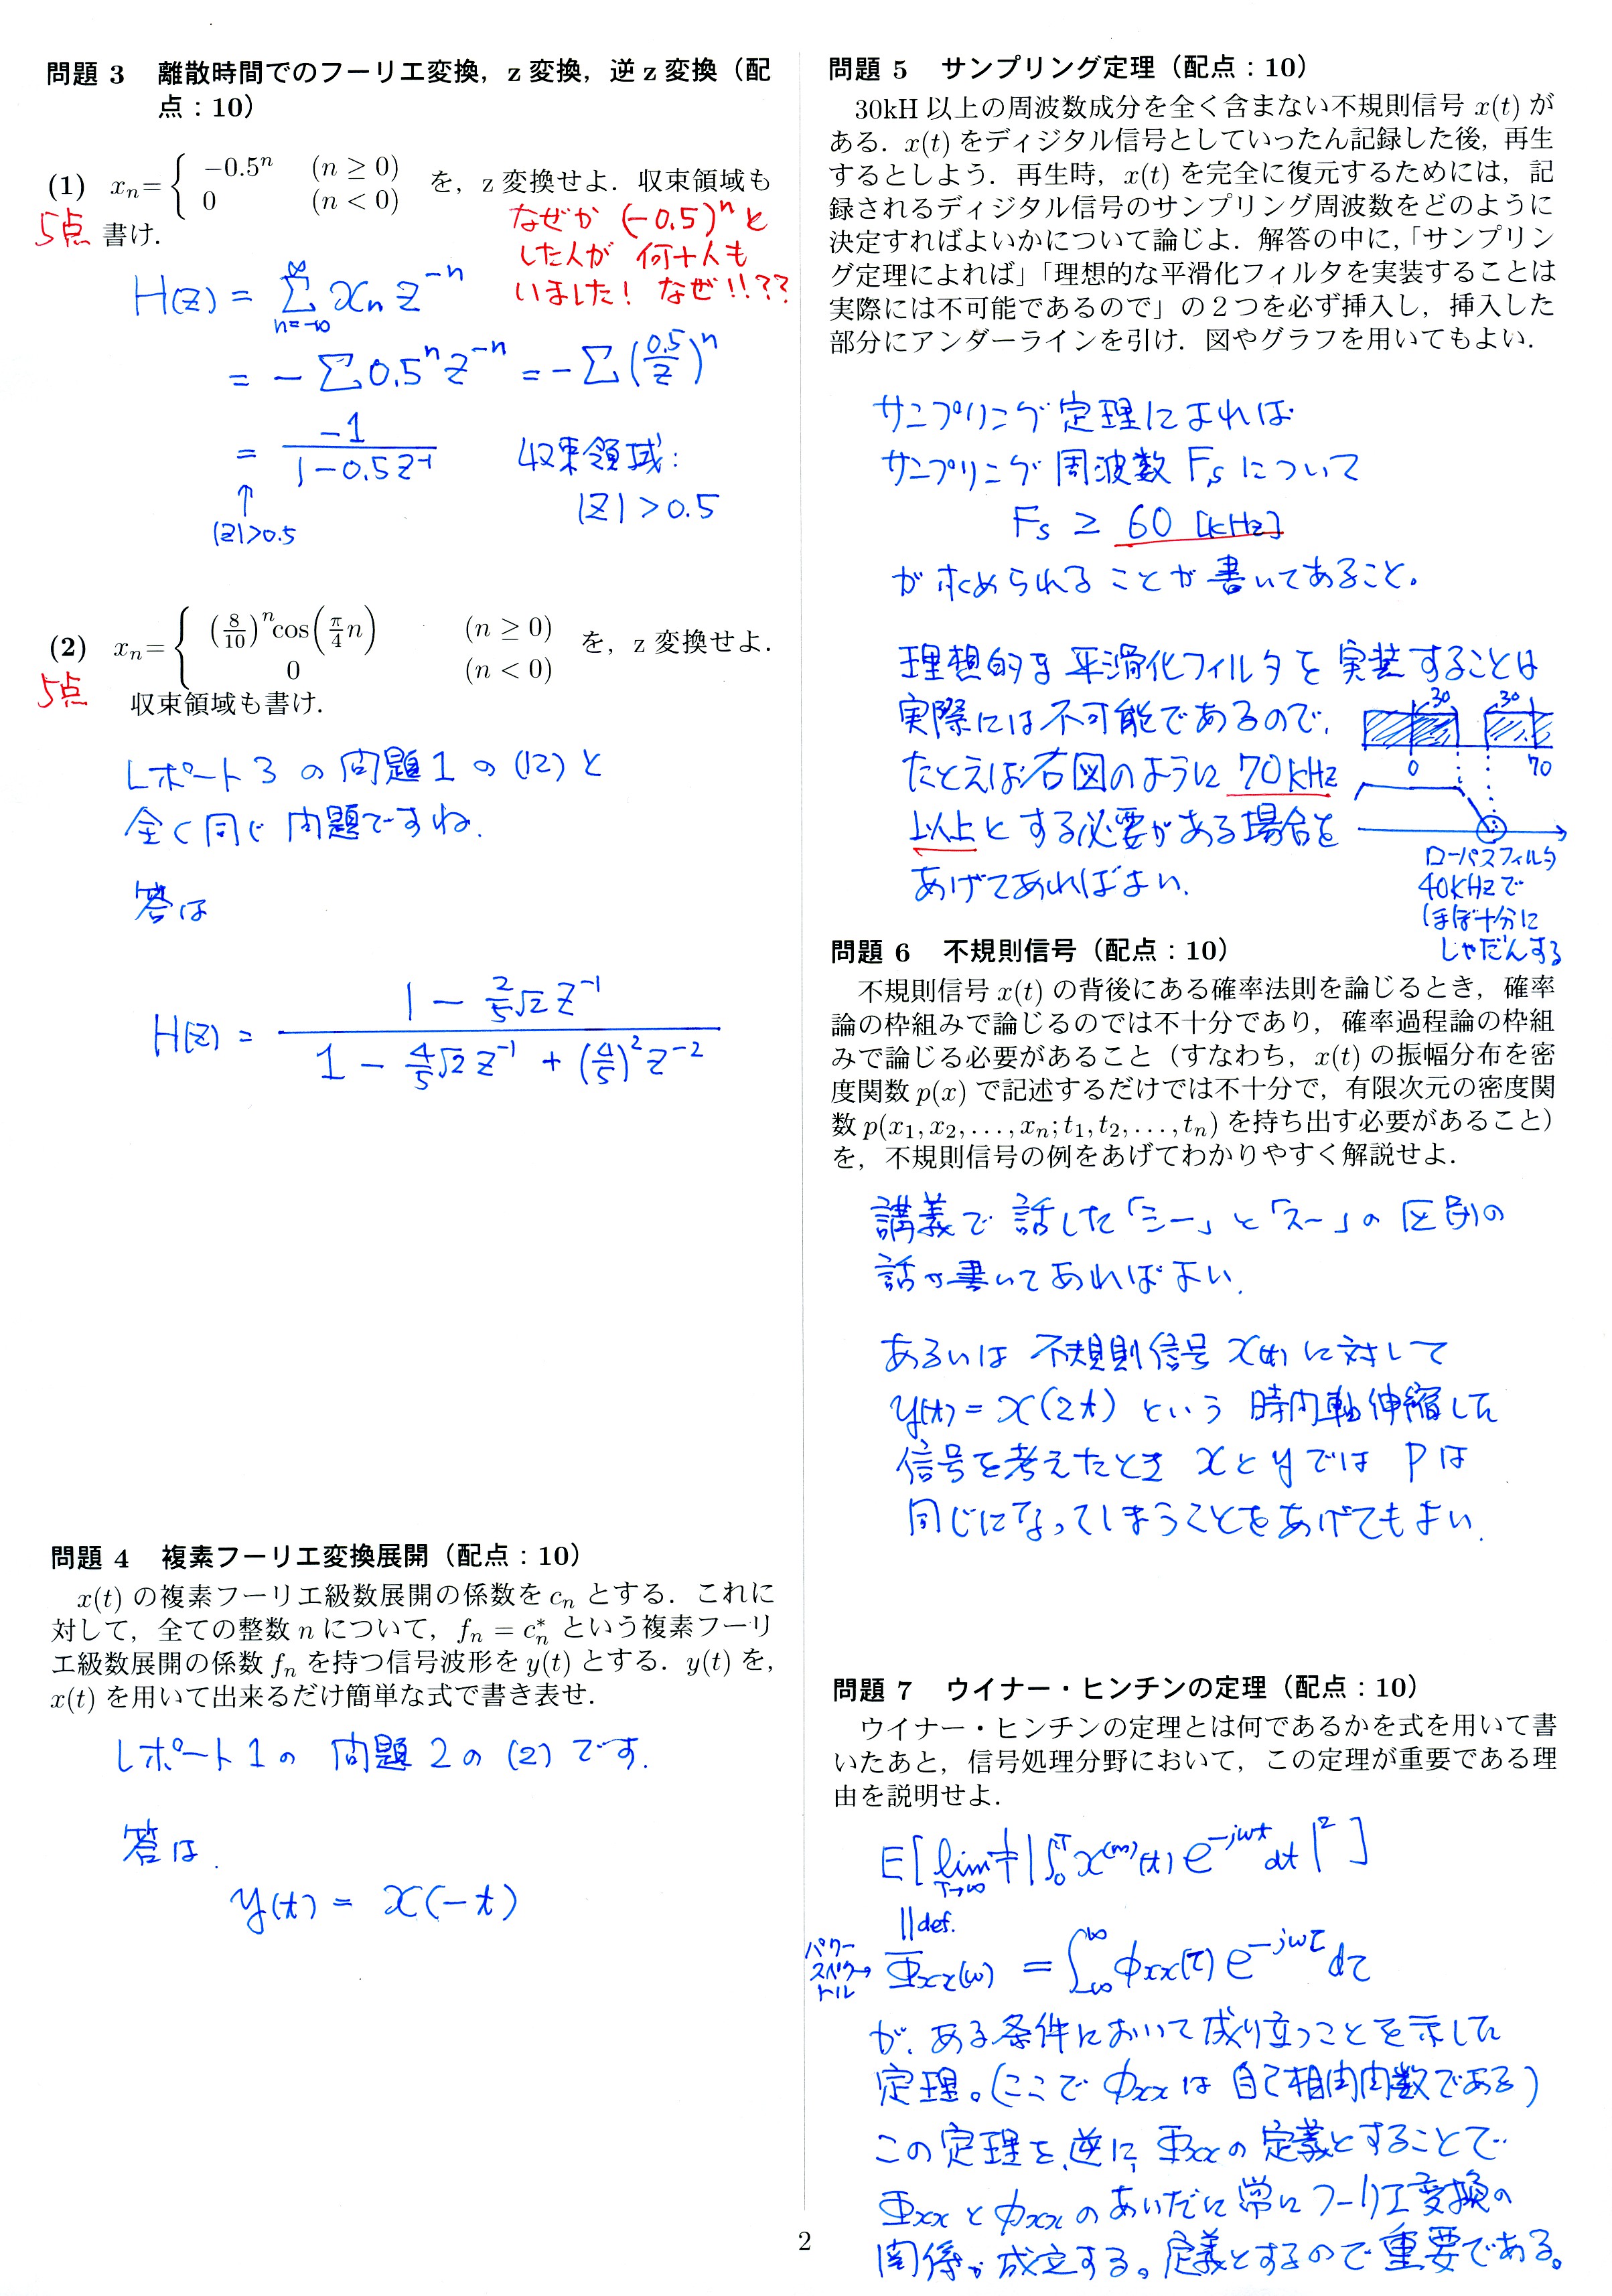 問題 3　離散時間でのフーリエ変換，z 変換，逆 z 変換（配
点：10）
(1)　xₙ= { −0.5ⁿ　(n ≥ 0)　を，z 変換せよ．収束領域も
0　(n < 0)
5点 書け．
なぜか (−0.5)ⁿ と
した人が 何十人も
いました! なぜ!!??
H(z) = Σ_{n=-∞}^{∞} xₙ z⁻ⁿ
= − Σ 0.5ⁿ z⁻ⁿ = − Σ (0.5/z)ⁿ
= −1 / (1−0.5z⁻¹)　収束領域:
↑　|z| > 0.5
|z|>0.5
(2)　xₙ= { (8/10)ⁿ cos(π/4 n)　(n ≥ 0)　を，z 変換せよ．
0　(n < 0)
5点　収束領域も書け．
レポート3 の 問題1 の (12) と
全く同じ 問題ですね.
答は
H(z) = (1 − 2/5 √2 z⁻¹) / (1 − 4/5 √2 z⁻¹ + (4/5)² z⁻²)
問題 4　複素フーリエ変換展開（配点：10）
x(t) の複素フーリエ級数展開の係数を cₙ とする．これに
対して，全ての整数 n について，fₙ = cₙ* という複素フーリ
エ級数展開の係数 fₙ を持つ信号波形を y(t) とする．y(t) を，
x(t) を用いて出来るだけ簡単な式で書き表せ．
レポート1の 問題2の (2) です.
答は.
y(t) = x(−t)
問題 5　サンプリング定理（配点：10）
30kH 以上の周波数成分を全く含まない不規則信号 x(t) が
ある．x(t) をディジタル信号としていったん記録した後，再生
するとしよう．再生時，x(t) を完全に復元するためには，記
録されるディジタル信号のサンプリング周波数をどのように
決定すればよいかについて論じよ．解答の中に，「サンプリン
グ定理によれば」「理想的な平滑化フィルタを実装することは
実際には不可能であるので」の 2 つを必ず挿入し，挿入した
部分にアンダーラインを引け．図やグラフを用いてもよい．
サンプリング定理によれば
サンプリング周波数 Fs について
Fs ≥ 60 [kHz]
が求められることが書いてあること。
理想的な平滑化フィルタを実装することは
実際には不可能であるので，
たとえば右図のように 70kHz
以上とする必要がある場合を
あげてあればよい.
30　30
0　70
ローパスフィルタ
40kHzで
ほぼ十分に
しゃだんする
問題 6　不規則信号（配点：10）
不規則信号 x(t) の背後にある確率法則を論じるとき，確率
論の枠組みで論じるのでは不十分であり，確率過程論の枠組
みで論じる必要があること（すなわち，x(t) の振幅分布を密
度関数 p(x) で記述するだけでは不十分で，有限次元の密度関
数 p(x₁, x₂, . . . , xₙ; t₁, t₂, . . . , tₙ) を持ち出す必要があること）
を，不規則信号の例をあげてわかりやすく解説せよ．
講義で話した「シー」と「スー」の区別の
話が書いてあればよい.
あるいは 不規則信号 x(t) に対して
y(t) = x(2t) という 時間軸伸縮した
信号を考えたとき x と y では P は
同じになってしまうことをあげてもよい.
問題 7　ウイナー・ヒンチンの定理（配点：10）
ウイナー・ヒンチンの定理とは何であるかを式を用いて書
いたあと，信号処理分野において，この定理が重要である理
由を説明せよ．
E[ lim_{T→∞} 1/T | ∫₀ᵀ x⁽ᵐ⁾(t) e^{−jωt} dt |² ]
|| def.
パワースペクトル→ Φxx(ω) = ∫_{-∞}^{∞} φxx(τ) e^{−jωτ} dτ
が，ある条件において成り立つことを示した
定理。(ここで φxx は 自己相関関数である)
この定理を，逆に，Φxx の定義とすることで
Φxx と φxx のあいだに 常に フーリエ変換の
関係が成立する。定義とするので 重要である。
2